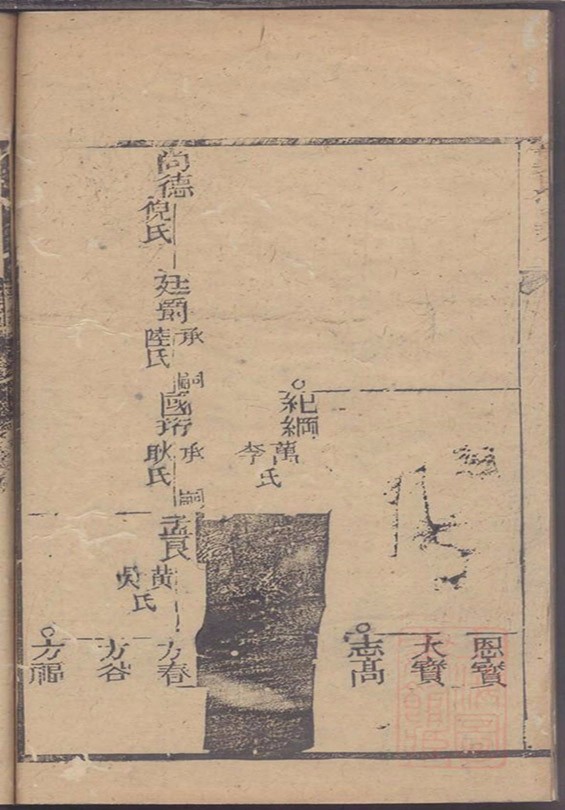 恩寶
大寶
志高
紀綱
萬
李
氏
尚德
倪氏
廷爵
承嗣
陸氏
國珩
承嗣
耿氏
孟良
黄
吳
氏
方春
方谷
方福